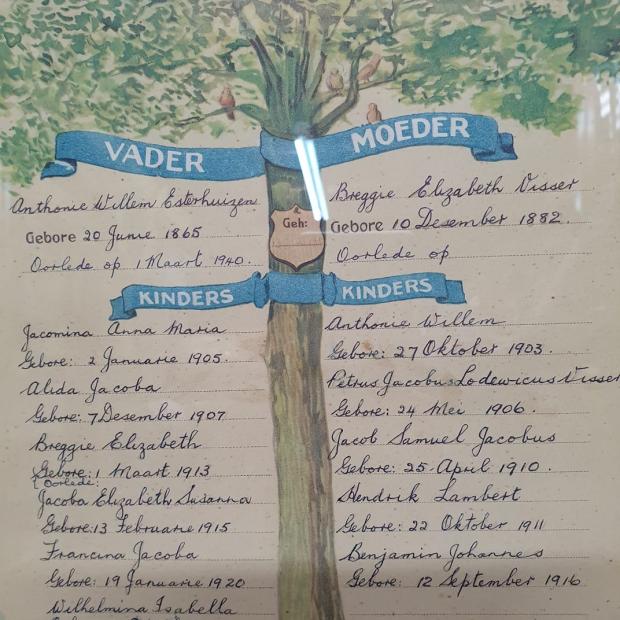 VADER
MOEDER
Anthonie Willem Esterhuizen
Gebore 20 Junie 1865
Oorlede op 1 Maart 1940.
Breggie Elizabeth Visser
Gebore 10 Desember 1882.
Oorlede op
Geh:
KINDERS
Jacomina Anna Maria
Gebore: 2 Januarie 1905.
Alida Jacoba
Gebore: 7 Desember 1907
Breggie Elizabeth
Gebore: 1 Maart 1913
Oorlede:
Jacoba Elizabeth Susanna
Gebore: 13 Februarie 1915
Francina Jacoba
Gebore: 19 Januarie 1920
Wilhelmina Isabella
KINDERS
Anthonie Willem
Gebore: 27 Oktober 1903.
Petrus Jacobus Lodewicus Visser
Gebore: 24 Mei 1906.
Jacob Samuel Jacobus
Gebore: 25 April 1910.
Hendrik Lambert
Gebore: 22 Oktober 1911
Benjamin Johannes
Gebore: 12 September 1916.